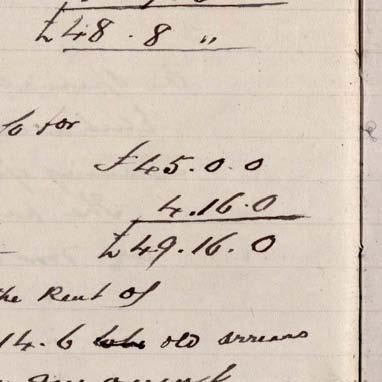 £48.8 "
so for
£45.0.0
4.16.0
£49.16.0
the Rent of
14.6 old arrears